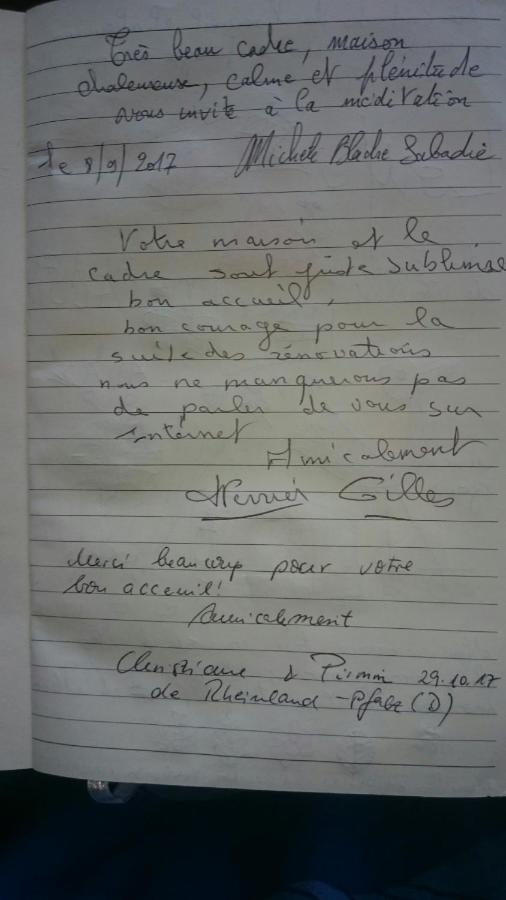 Très beau cadre, maison
chaleureuse, calme et plénitude
vous invite à la méditation
le 8/9/2017 Michele Sabadie
Votre maison et le
cadre sont juste sublime
bon accueil,
bon courage pour la
suite des rénovations
nous ne manquerons pas
de parler de vous sur
Internet
Amicalement
Gilles
Merci beaucoup pour votre
bon acceuil!
Amicalement
Christiane & Pirmin 29.10.17
de Rheinland-Pfalz (D)